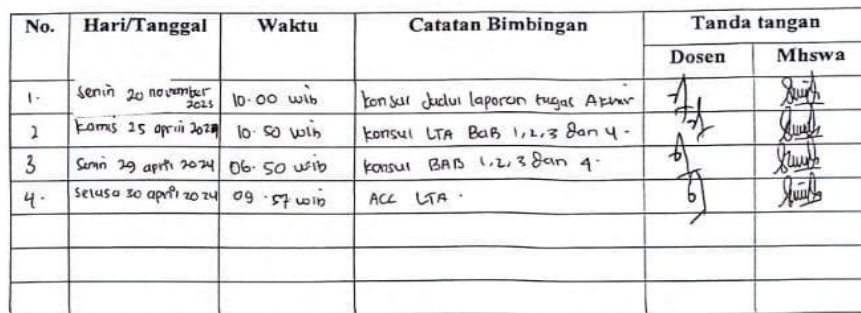 No. Hari/Tanggal Waktu Catatan Bimbingan Tanda tangan
Dosen Mhswa
1. Senin 20 november 2023 10.00 wib Konsul Judul laporan tugas Akhir
2 Kamis 25 april 2024 10.50 wib Konsul LTA BaB 1,2,3 dan 4.
3 Senin 29 april 2024 06.50 wib Konsul BAB 1,2,3 dan 4.
4. Selasa 30 april 2024 09.57 wib ACC LTA.